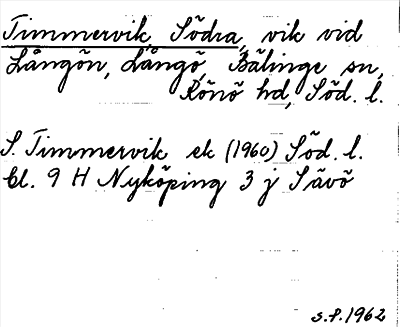 Timmervik, Södra, vik vid
Långön, Långö, Bälinge sn,
Rönö hd, Söd. l.
S. Timmervik ek (1960) Söd. l.
bl. 9 H Nyköping 3 j Sävö
s.f. 1962